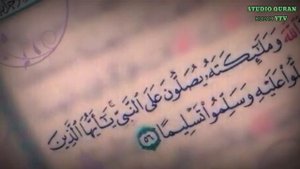 STUDIO QURAN
YTV
ٱللَّهَ وَمَلَٰٓئِكَتَهُۥ يُصَلُّونَ عَلَى ٱلنَّبِيِّ يَٰٓأَيُّهَا ٱلَّذِينَ
لُّوا۟ عَلَيْهِ وَسَلِّمُوا۟ تَسْلِيمًا ٥٦